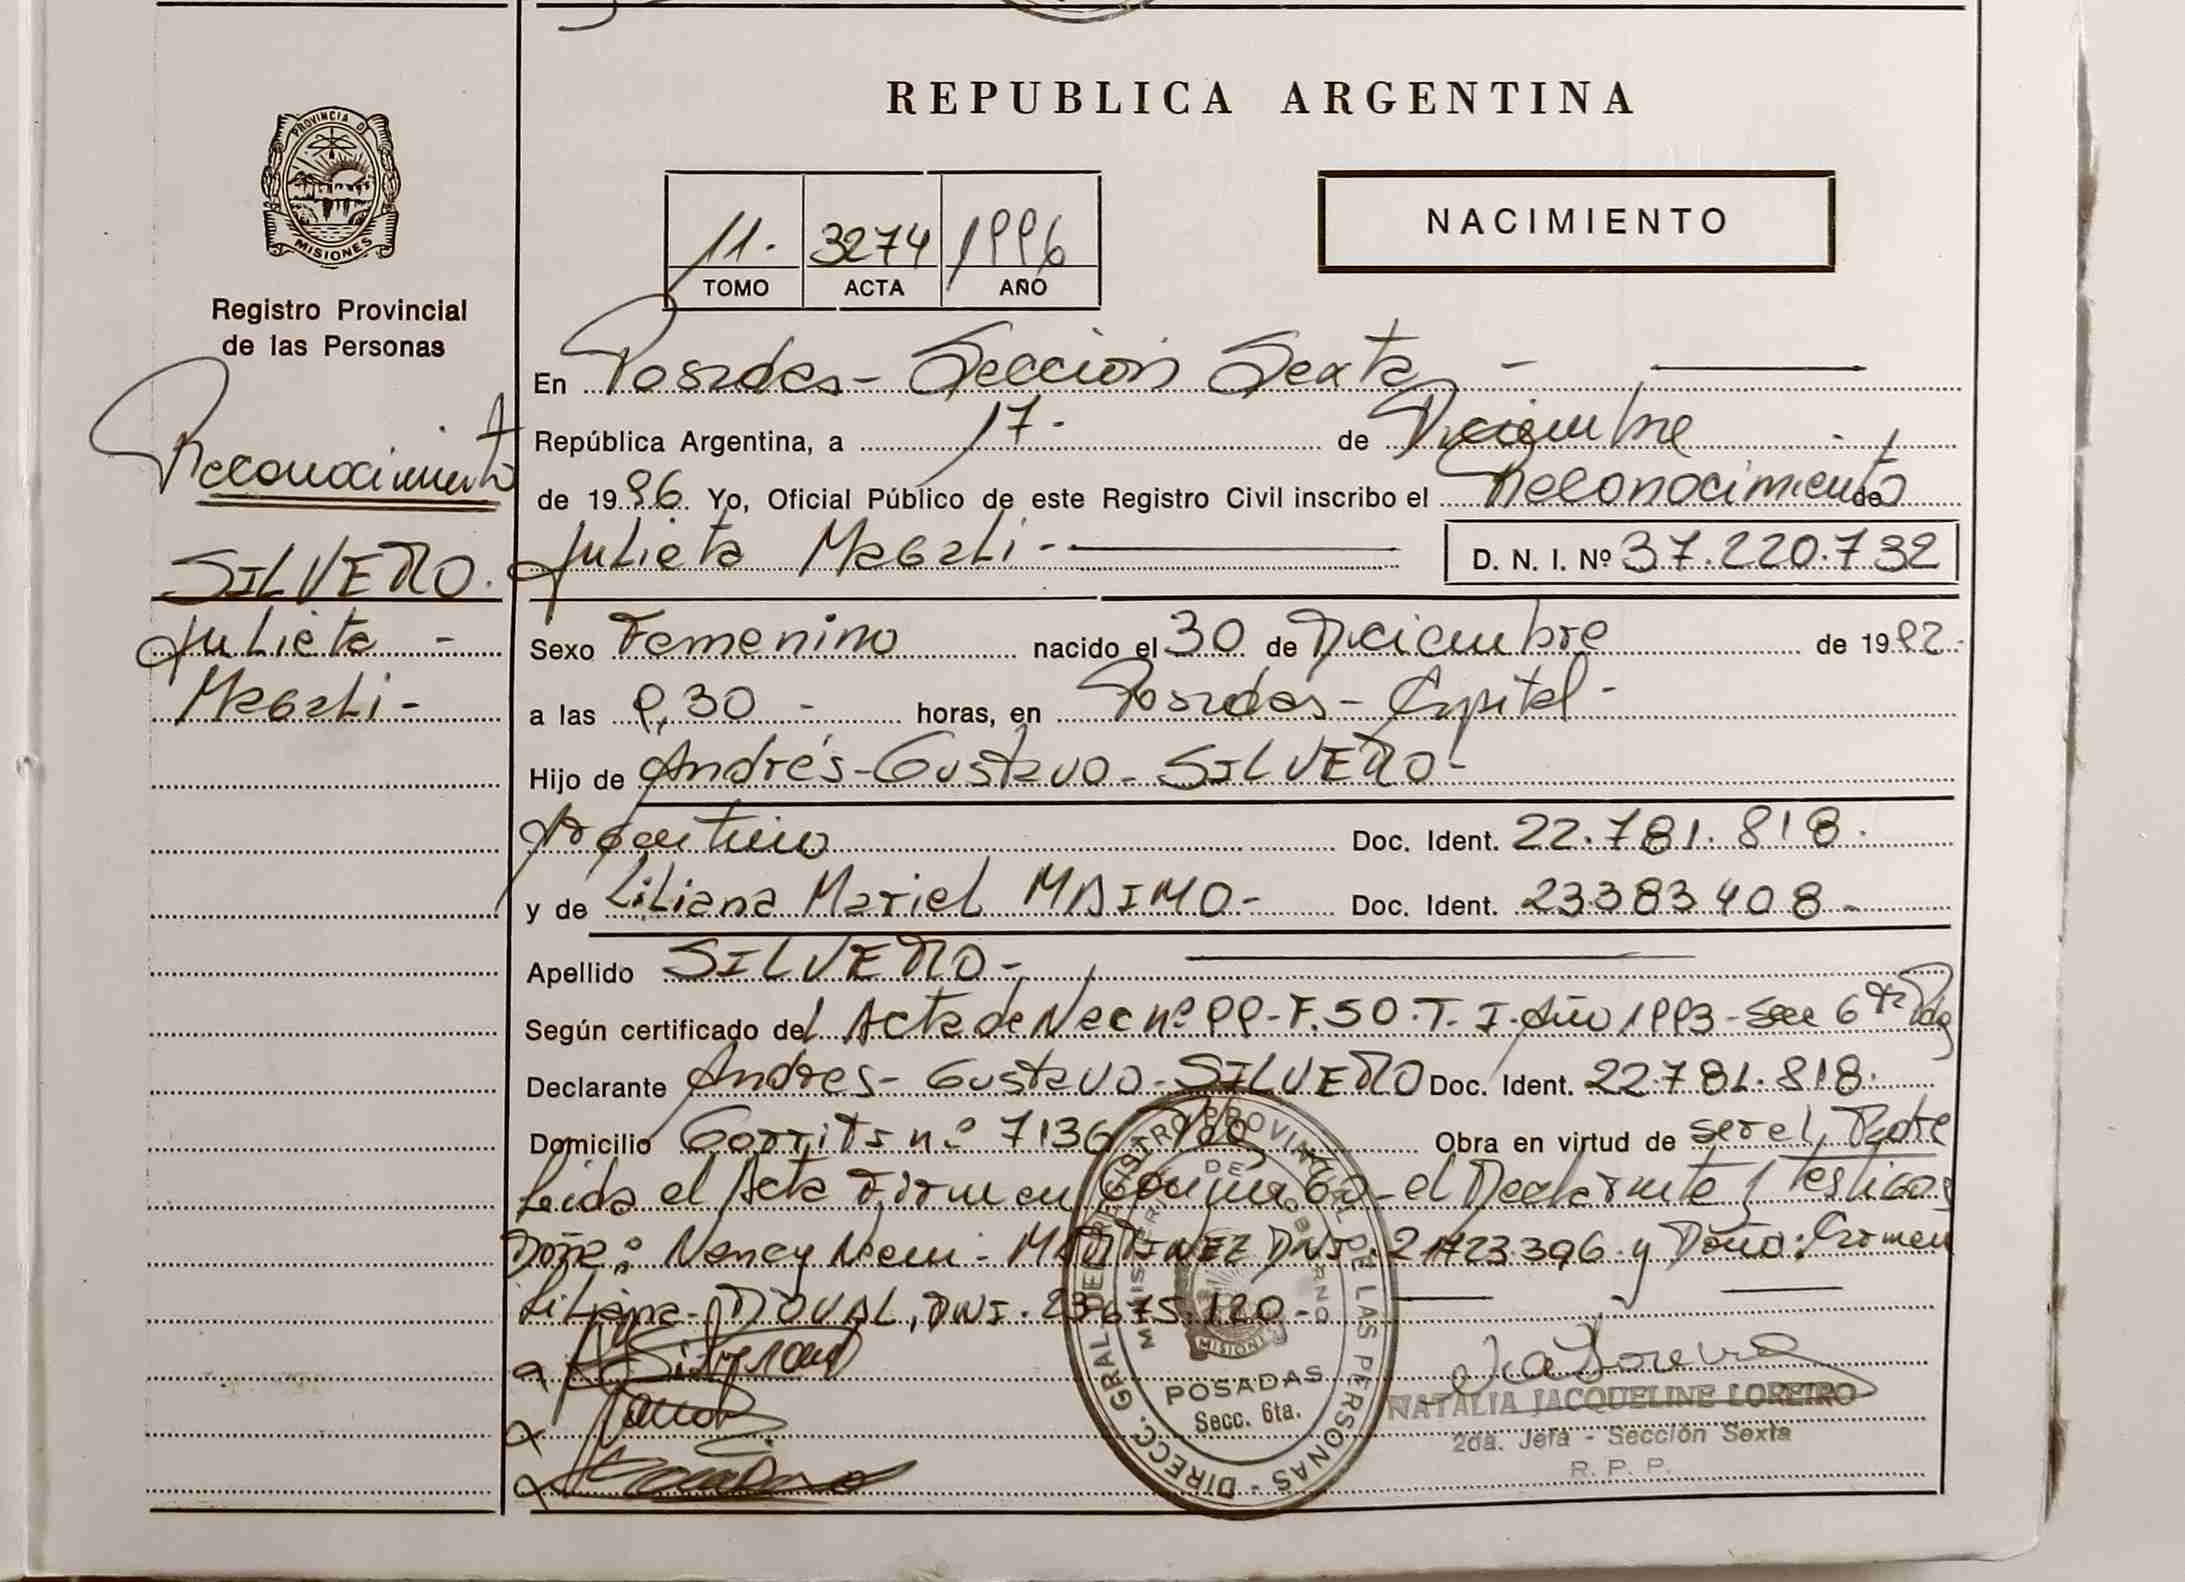 REPUBLICA ARGENTINA
PROVINCIA D
MISIONES
Registro Provincial
de las Personas
NACIMIENTO
11. 3274 1996
TOMO ACTA AÑO
En Posadas - Sección Sexta -
República Argentina, a 17. de Diciembre
de 1996. Yo, Oficial Público de este Registro Civil inscribo el Reconocimiento de
Julieta Magali - D. N. I. Nº 37.220.732
Reconocimiento
SILVERO.
Julieta -
Magali -
Sexo Femenino nacido el 30 de Diciembre de 1992.-
a las 9,30 - horas, en Posadas - Capital -
Hijo de Andrés - Gustavo - SILVERO -
Argentino Doc. Ident. 22.781.818.
y de Liliana Mariel Doc. Ident. 23383408 -
Apellido SILVERO -
Según certificado del Acta de Nac nº 99 - F. 50. T. I. Año 1993 - Secc 6ta Pdas
Declarante Andres - Gustavo - SILVERO Doc. Ident. 22.781.818.
Domicilio Gorriti nº 7136 Pdas Obra en virtud de ser el Padre
Leida el Acta Firman el Declarante y testigos
Doña: Nancy Noemi - MARTINEZ DNI. y Doña: Carmen
Liliana - DOVAL, DNI. 23.675.120 -
DIRECC. GRAL. DE REGISTRO PROVINCIAL DE LAS PERSONAS
MINISTERIO DE GOBIERNO
MISIONES
POSADAS
Secc. 6ta.
NATALIA JACQUELINE LOREIRO
2da. Jefa - Sección Sexta
R. P. P.